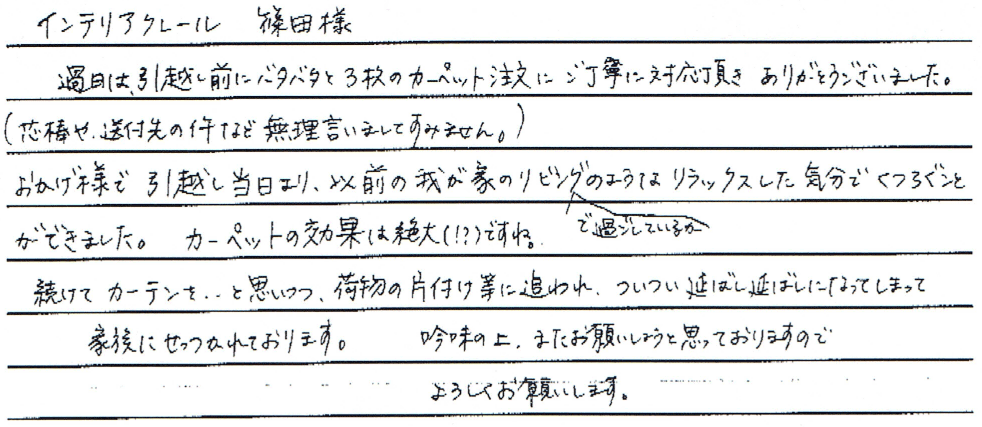 インテリアクレール 篠田様
過日は、引越し前にバタバタと3枚のカーペット注文にご丁寧に対応頂きありがとうございました。
(芯棒や、送付先の件など無理言いましてすみません。)
おかげ様で引越し当日より、以前の我が家のリビングのようなリラックスした気分でくつろぐこと
で過ごしているか
ができました。 カーペットの効果は絶大(!?)ですね。
続けてカーテンを..と思いつつ、荷物の片付け等に追われ、ついつい延ばし延ばしになってしまって
家後にせっつかれております。 吟味の上、またお願いしようと思っておりますので
よろしくお願いします。